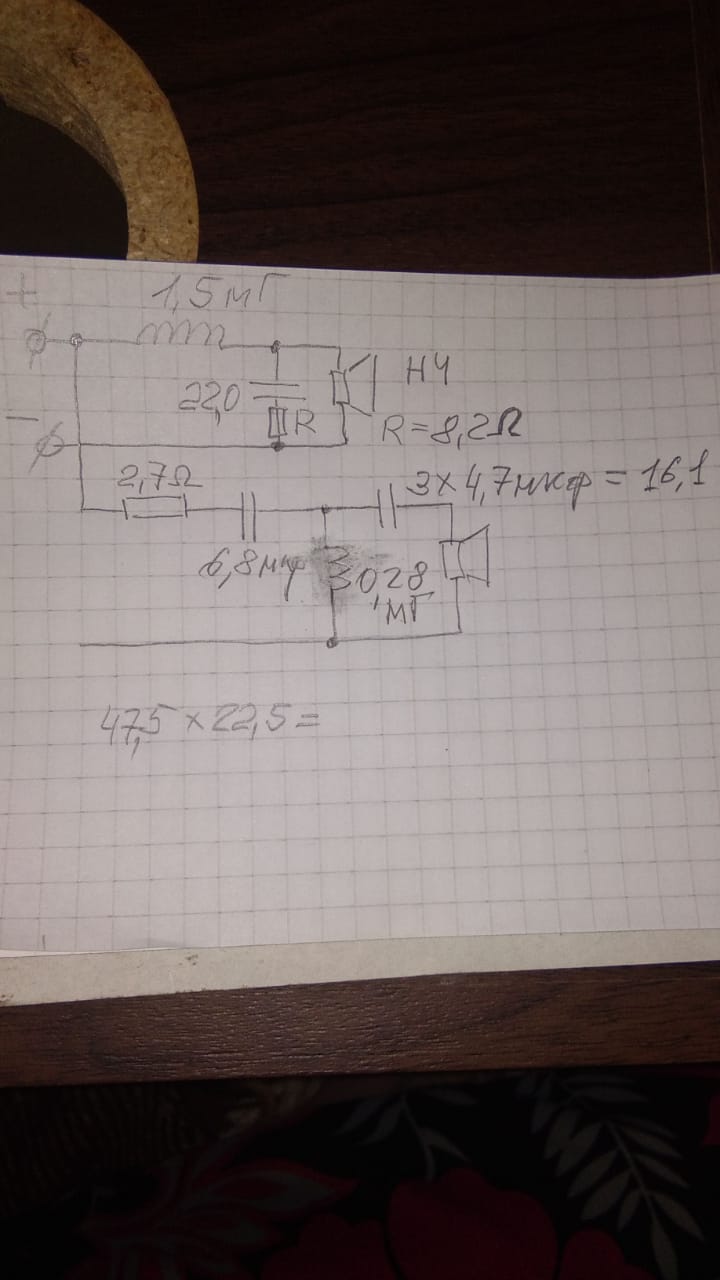 + 1,5мГ
22,0
R
НЧ
−
R=8,2Ω
2,7Ω
3×4,7мкф=16,1
6,8мкф
0,28
мГ
47,5×22,5=